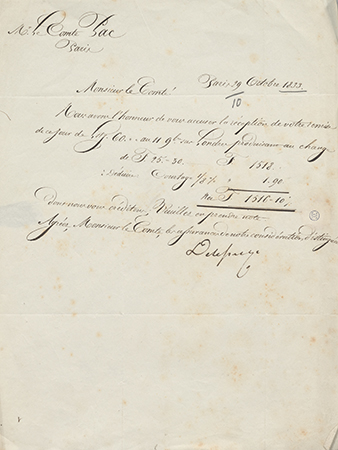 Mr. le Comte Pac
Paris
Paris 29 Octobre 1833
10
Monsieur le Comte
Nous avons l'honneur de vous accuser la réception de votre remise
de ce jour de Lst 60.. au 11 9bre sur Londres produisant au change
de F 25-30. F 1518.
Déduire Courtage 1/8 % " 1.90
Net F 1516-10
dont nous vous créditons, Veuillez en prendre note
Agréez, Monsieur le Comte, les assurances de notre considération distinguée